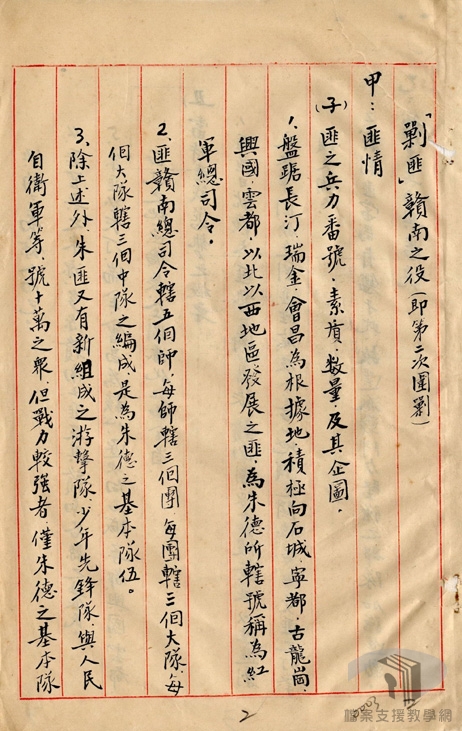 「剿匪」贛南之役（即第二次圍剿）
甲：匪情
(子)匪之兵力番號、素質、數量、及其企圖。
1、盤踞長汀、瑞金、會昌為根據地、積極向石城、寧都、古龍崗、
興國、雲都、以北以西地區發展之匪、為朱德所轄號稱為紅
軍總司令。
2、匪贛南總司令轄五個師、每師轄三個團、每團轄三個大隊、每
個大隊轄三個中隊之編成、是為朱德之基本隊伍。
3、除上述外、朱匪又有新組成之游擊隊、少年先鋒隊、與人民
自衛軍等、號十萬之眾、但戰力較強者、僅朱德之基本隊
2
檔案支援教學網